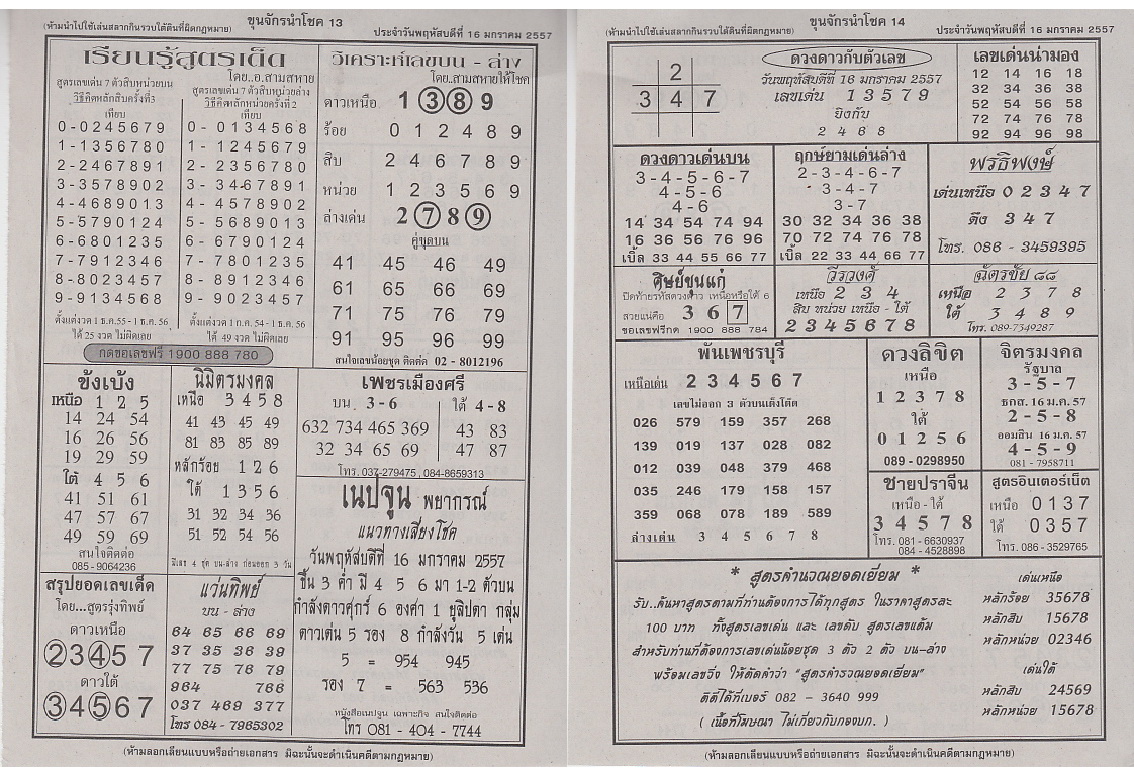 ขุนจักรนำโชค 13
(ห้ามนำไปใช้เล่นสลากกินรวบใต้ดินที่ผิดกฎหมาย)
ประจำวันพฤหัสบดีที่ 16 มกราคม 2557
เรียนรู้สูตรเด็ด
โดย..อ.สามสหาย
สูตรเลขเด่น 7 ตัวสิบหน่วยบน
วิธีคิดหลักสิบครั้งที่3
เทียบ
0-0245679
1-1356780
2-2467891
3-3578902
4-4689013
5-5790124
6-6801235
7-7912346
8-8023457
9-9134568
ตั้งแต่งวด 1 ธ.ค.55 - 1 ธ.ค. 56
ได้ 25 งวด ไม่ผิดเลย
สูตรเลขเด่น 7 ตัวสิบหน่วยล่าง
วิธีคิดหลักหน่วยครั้งที่ 2
เทียบ
0- 0134568
1- 1245679
2- 2356780
3- 3467891
4- 4578902
5- 5689013
6- 6790124
7- 7801235
8- 8912346
9- 9023457
ตั้งแต่งวด 1 ก.ค. 54 - 1 ธ.ค. 56
ได้ 49 งวด ไม่ผิดเลย
กดขอเลขฟรี 1900 888 780
วิเคราะห์เลขบน - ล่าง
โดย..สามสหายให้โชค
ดาวเหนือ 1 3 8 9
ร้อย 0 1 2 4 8 9
สิบ 2 4 6 7 8 9
หน่วย 1 2 3 5 6 9
ล่างเด่น 2 7 8 9
คู่ชุดบน
41 45 46 49
61 65 66 69
71 75 76 79
91 95 96 99
สนใจเลขน้อยชุด ติดต่อ 02 - 8012196
ขังเบ้ง
เหนือ 1 2 5
14 24 54
16 26 56
19 29 59
ใต้ 4 5 6
41 51 61
47 57 67
49 59 69
สนใจติดต่อ
085 - 9064236
นิมิตรมงคล
เหนือ 3 4 5 8
41 43 45 49
81 83 85 89
หลักร้อย 1 2 6
ใต้ 1 3 5 6
31 32 34 36
51 52 54 56
มีเลข 4 ชุด บน-ล่าง ก่อนออก 3 วัน
เพชรเมืองศรี
บน 3-6 ใต้ 4-8
632 734 465 369 43 83
32 34 65 69 47 87
โทร. 037-279475 , 084-8659313
เนปจูน พยากรณ์
แนวทางเสี่ยงโชค
วันพฤหัสบดีที่ 16 มกราคม 2557
ขึ้น 3 ค่ำ มี 4 5 6 มา 1-2 ตัวบน
กำลังดาวศุกร์ 6 องศา 1 ยุลิปดา กลุ่ม
ดาวเด่น 5 รอง 8 กำลังวัน 5 เด่น
5 = 954 945
รอง 7 = 563 536
หนังสือเนปจูน เฉพาะกิจ สนใจติดต่อ
โทร 081 - 404 - 7744
สรุปยอดเลขเด็ด
โดย...สูตรรุ่งทิพย์
ดาวเหนือ
2 3 4 5 7
ดาวใต้
3 4 5 6 7
แว่นทิพย์
บน - ล่าง
64 65 66 69
37 35 36 39
77 75 76 79
964 766
037 469 377
โทร 084 - 7965302
(ห้ามลอกเลียนแบบหรือถ่ายเอกสาร มิฉะนั้นจะดำเนินคดีตามกฎหมาย)
ขุนจักรนำโชค 14
(ห้ามนำไปใช้เล่นสลากกินรวบใต้ดินที่ผิดกฎหมาย)
ประจำวันพฤหัสบดีที่ 16 มกราคม 2557
2
3 4 7
ดวงดาวกับตัวเลข
วันพฤหัสบดีที่ 16 มกราคม 2557
เลขเด่น 1 3 5 7 9
ยิงกับ
2 4 6 8
เลขเด่นน่ามอง
12 14 16 18
32 34 36 38
52 54 56 58
72 74 76 78
92 94 96 98
ดวงดาวเด่นบน
3-4-5-6-7
4-5-6
4-6
14 34 54 74 94
16 36 56 76 96
เบิ้ล 33 44 55 66 77
ฤกษ์ยามเด่นล่าง
2-3-4-6-7
3-4-7
3-7
30 32 34 36 38
70 72 74 76 78
เบิ้ล 22 33 44 66 77
พรธิพงษ์
เด่นเหนือ 0 2 3 4 7
ดึง 3 4 7
โทร. 086 - 3459395
ศิษย์ขุนแก่
ปิดท้ายรหัสดวงดาว เหนือหรือใต้ 6
สวยแน่คือ 3 6 7
ขอเลขฟรีกด 1900 888 784
วีรวงศ์
เหนือ 2 3 4
สิบ หน่วย เหนือ - ใต้
2 3 4 5 6 7 8
ฉัตรชัย ๘๘
เหนือ 2 3 7 8
ใต้ 3 4 8 9
โทร. 089-7349287
พันเพชรบุรี
เหนือเด่น 2 3 4 5 6 7
เลขไม่ออก 3 ตัวบนเต็งโต๊ด
026 579 159 357 268
139 019 137 028 082
012 039 048 379 468
035 246 179 158 157
359 068 078 189 589
ล่างเด่น 3 4 5 6 7 8
ดวงลิขิต
เหนือ
1 2 3 7 8
ใต้
0 1 2 5 6
089 - 0298950
จิตรมงคล
รัฐบาล
3-5-7
ธกส. 16 ม.ค. 57
2-5-8
ออมสิน 16 ม.ค. 57
4-5-9
081 - 7958711
ชายปราจีน
เหนือ - ใต้
3 4 5 7 8
โทร. 081 - 6630937
084 - 4528898
สูตรอินเตอร์เน็ต
เหนือ 0137
ใต้ 0357
โทร. 086 - 3529765
* สูตรคำนวณยอดเยี่ยม *
รับ..ค้นหาสูตรตามที่ท่านต้องการได้ทุกสูตร ในราคาสูตรละ
100 บาท ทั้งสูตรเลขเด่น และ เลขดับ สูตรเลขแต้ม
สำหรับท่านที่ต้องการเลขเด่นน้อยชุด 3 ตัว 2 ตัว บน-ล่าง
พร้อมเลขวิ่ง ให้ตัดคำว่า "สูตรคำรวณยอดเยี่ยม"
ติดต่อได้ที่เบอร์ 082 - 3640 999
( เนื้อที่โฆษณา ไม่เกี่ยวกับกองบก. )
เด่นเหนือ
หลักร้อย 35678
หลักสิบ 15678
หลักหน่วย 02346
เด่นใต้
หลักสิบ 24569
หลักหน่วย 15678
(ห้ามลอกเลียนแบบหรือถ่ายเอกสาร มิฉะนั้นจะดำเนินคดีตามกฎหมาย)